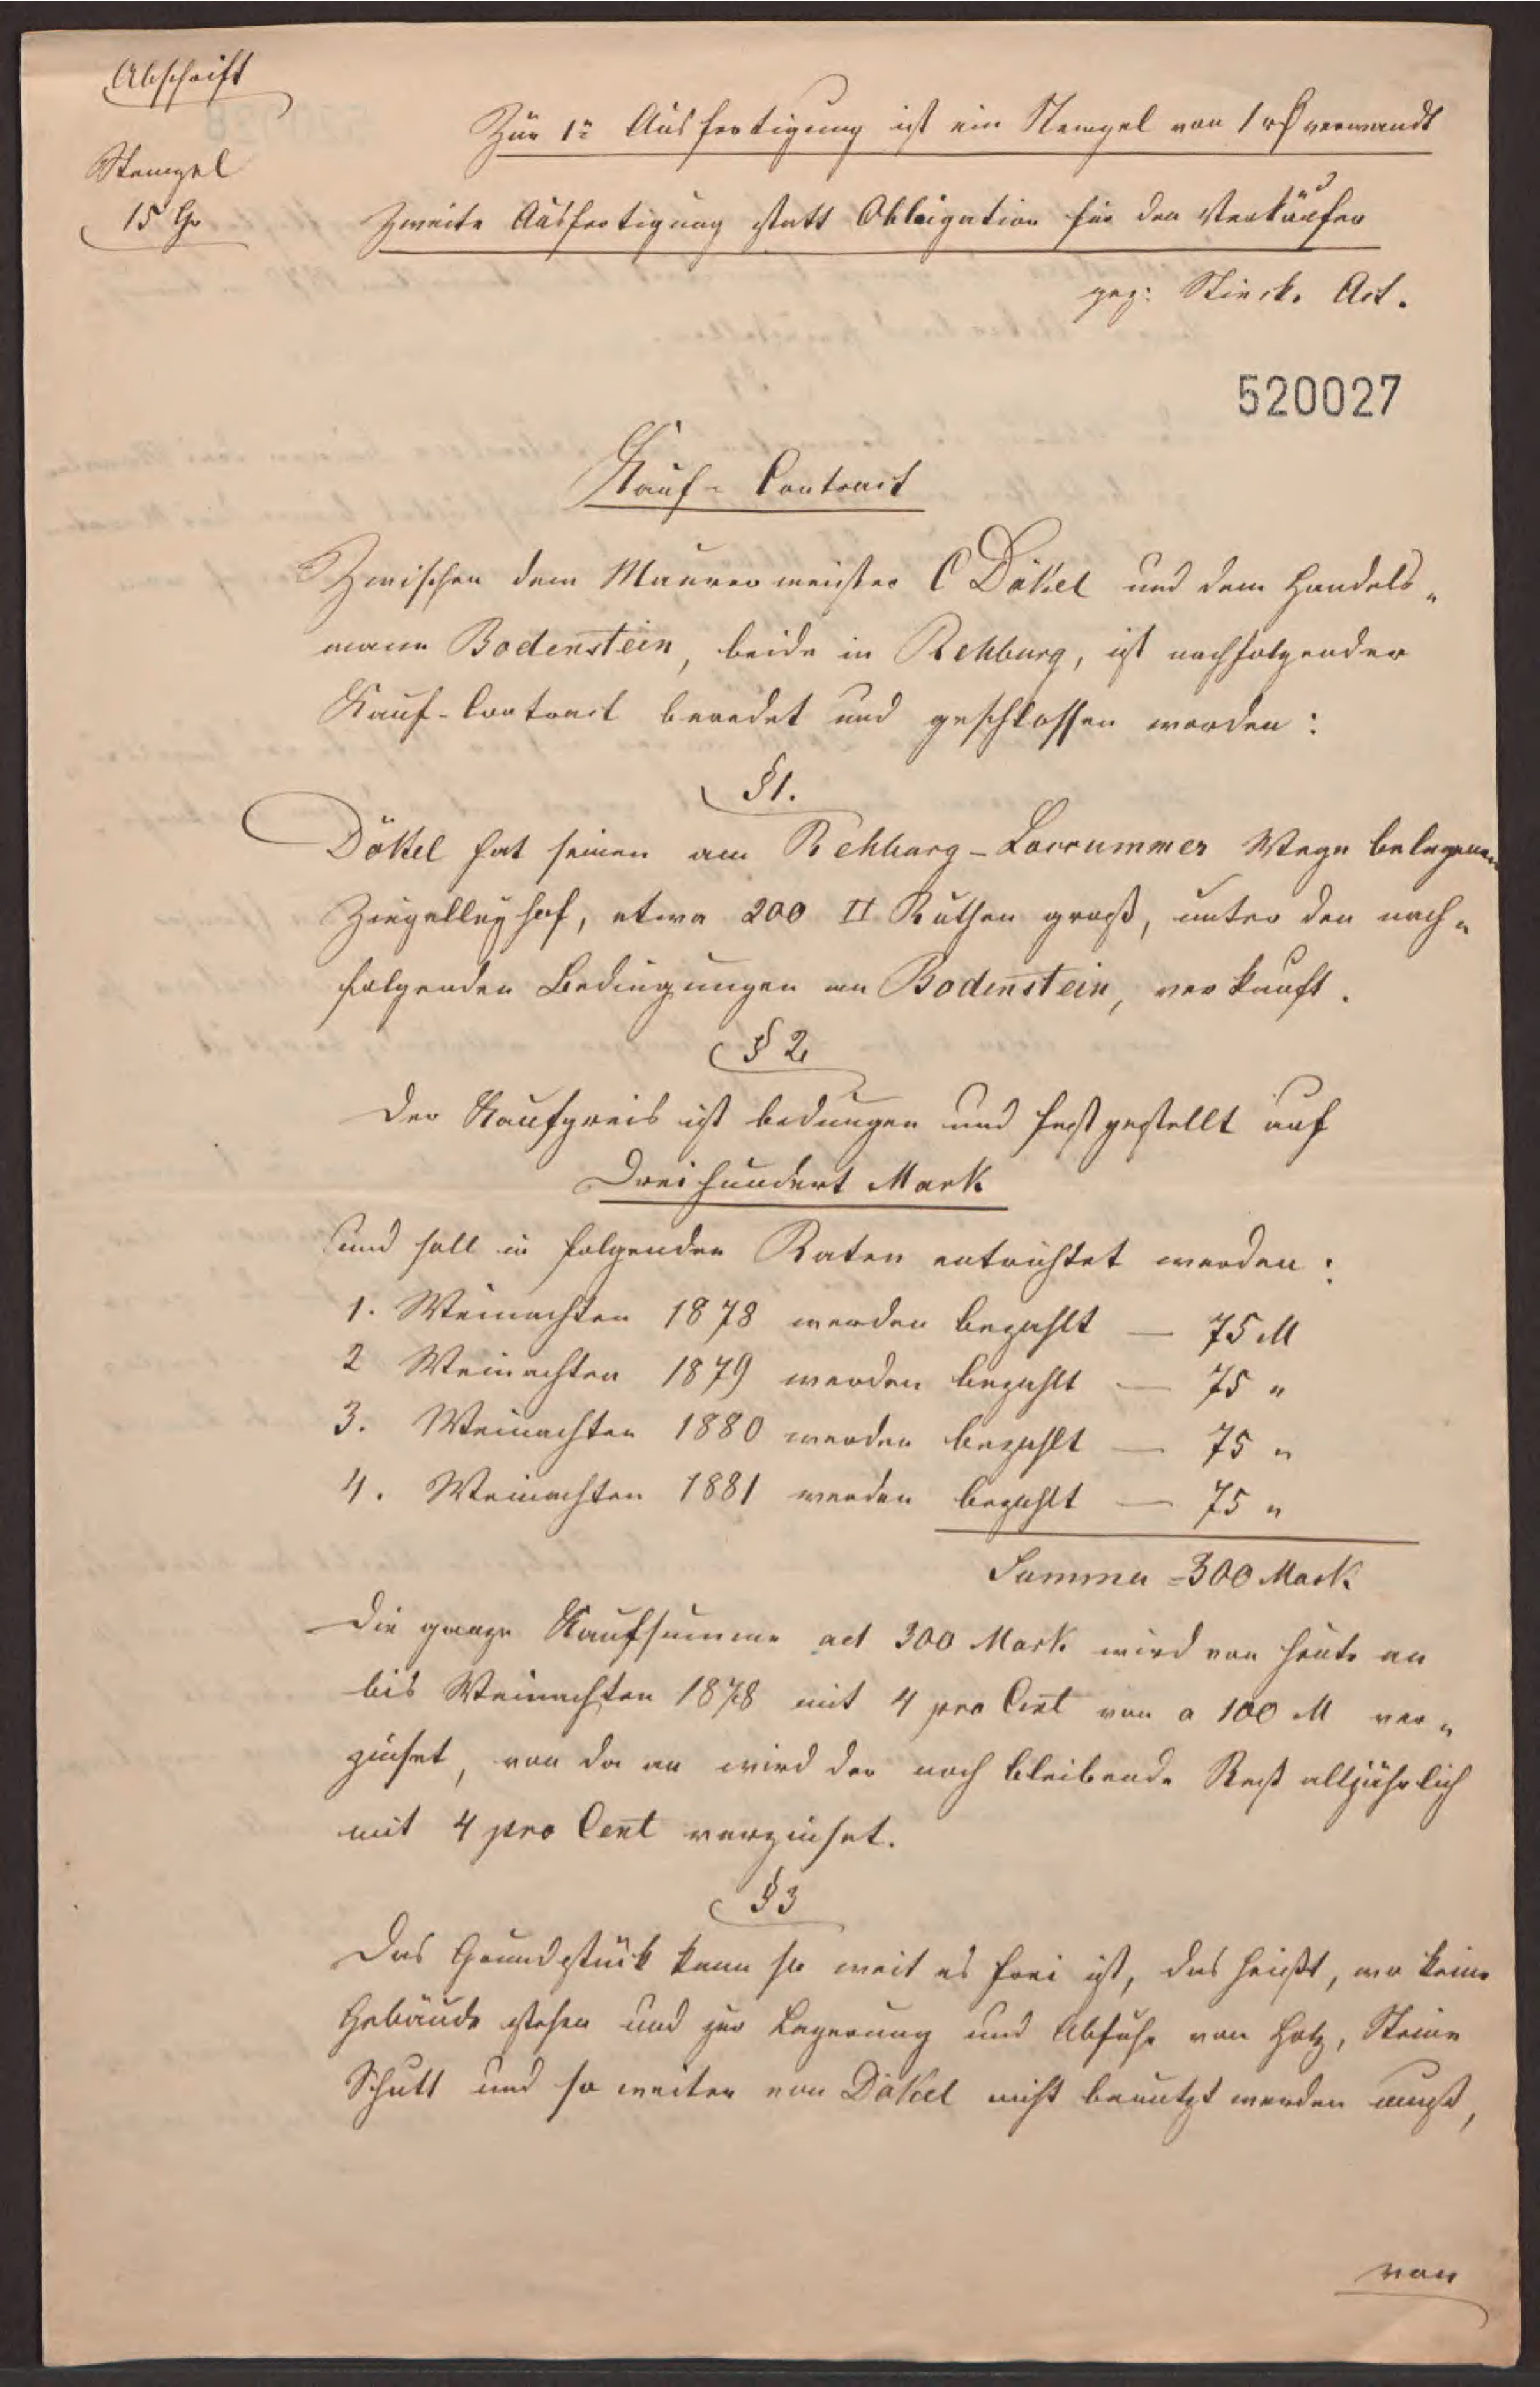 Abschrift
Stempel
15 Gr
Zur 1n Ausfertigung ist ein Stempel von 1 rℓ verwandt
Zweite Ausfertigung statt Obligation für den Verkäufer
gez: Act.
520027
Kauf-Contract
Zwischen dem Maurermeister C Däkel und dem Handels„
mann Bodenstein, beide in Rehburg, ist nachfolgender
Kauf-Contract beredet und geschlossen worden:
§ 1.
Däkel hat seinen am Rehburg-Loccummer Wege belegenen
hof, etwa 200 □ Ruthen groß, unter den nach„
folgenden Bedingungen an Bodenstein, verkauft.
§ 2
Der Kaufpreis ist bedungen und festgestellt auf
Dreihundert Mark
und soll in folgenden Raten entrichtet werden:
1. Weinachten 1878 werden bezahlt — 75 M
2 Weinachten 1879 werden bezahlt — 75 „
3. Weinachten 1880 werden bezahlt — 75 „
4. Weinachten 1881 werden bezahlt — 75 „
Summa = 300 Mark
Die ganze Kaufsumme ad 300 Mark wird von heute an
bis Weinachten 1878 mit 4 pro Cent von a 100 M ver„
zinset, von da an wird der noch bleibende Rest alljährlich
mit 4 pro Cent verzinset.
§ 3
Das Grundstück kann so weit es frei ist, das heißt, wo keine
Gebäude stehen und zur Lagerung und Abfuhr von Holz, Steine
Schutt und so weiter von Däkel nicht benutzt werden muß,
von